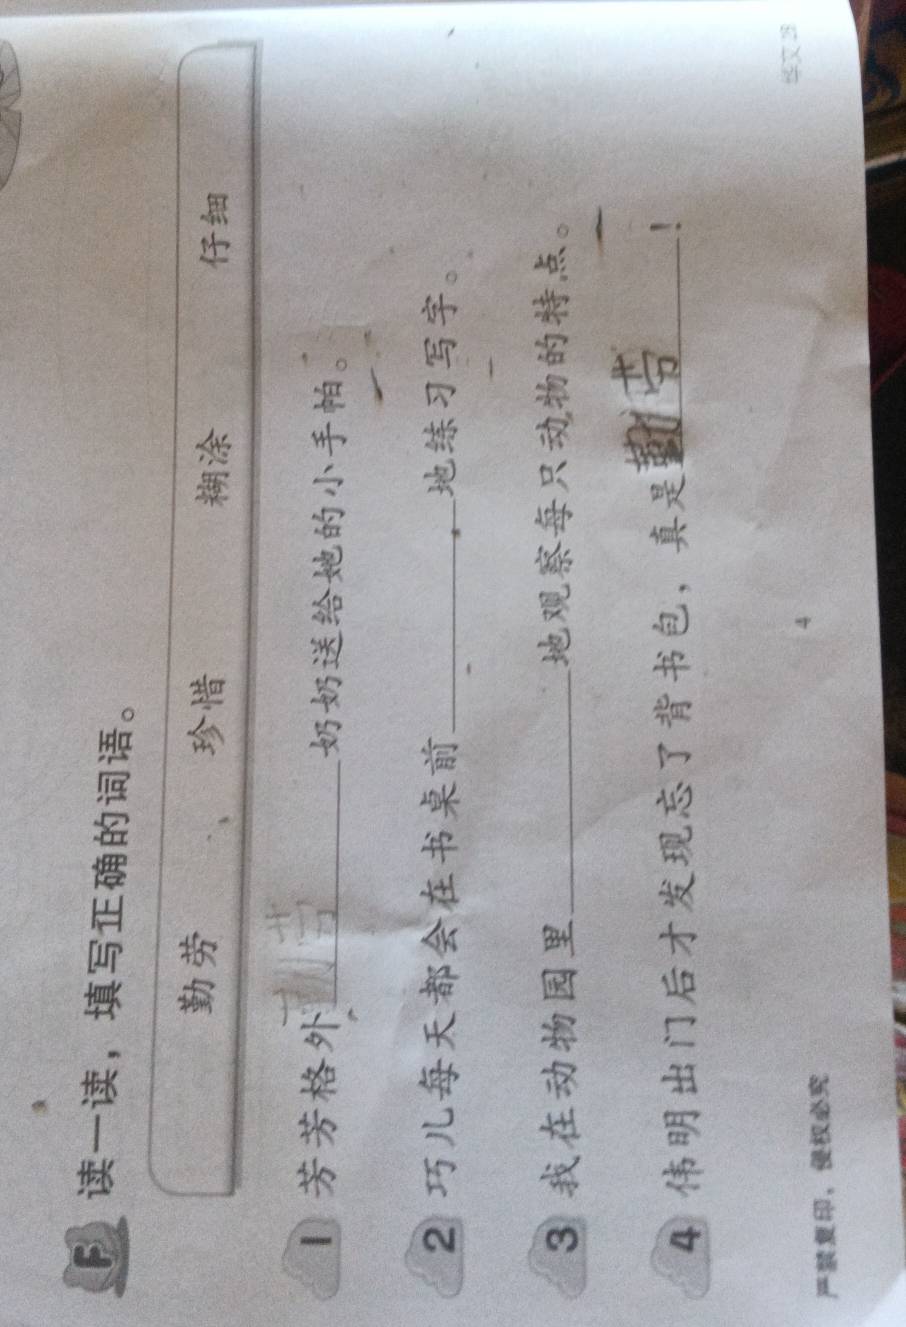 F 读一读，填写正确的词语。
勤劳 珍惜 糊涂 仔细
1 芳芳格外勤劳奶奶送给她的小手帕。
2 巧儿每天都会在书桌前______地练习写字。
3 我在动物园里______地观察每只动物的特点。
4 伟明出门后才发现忘了背书包，真是勤劳！
严禁复印，侵权必究
4
华文2B